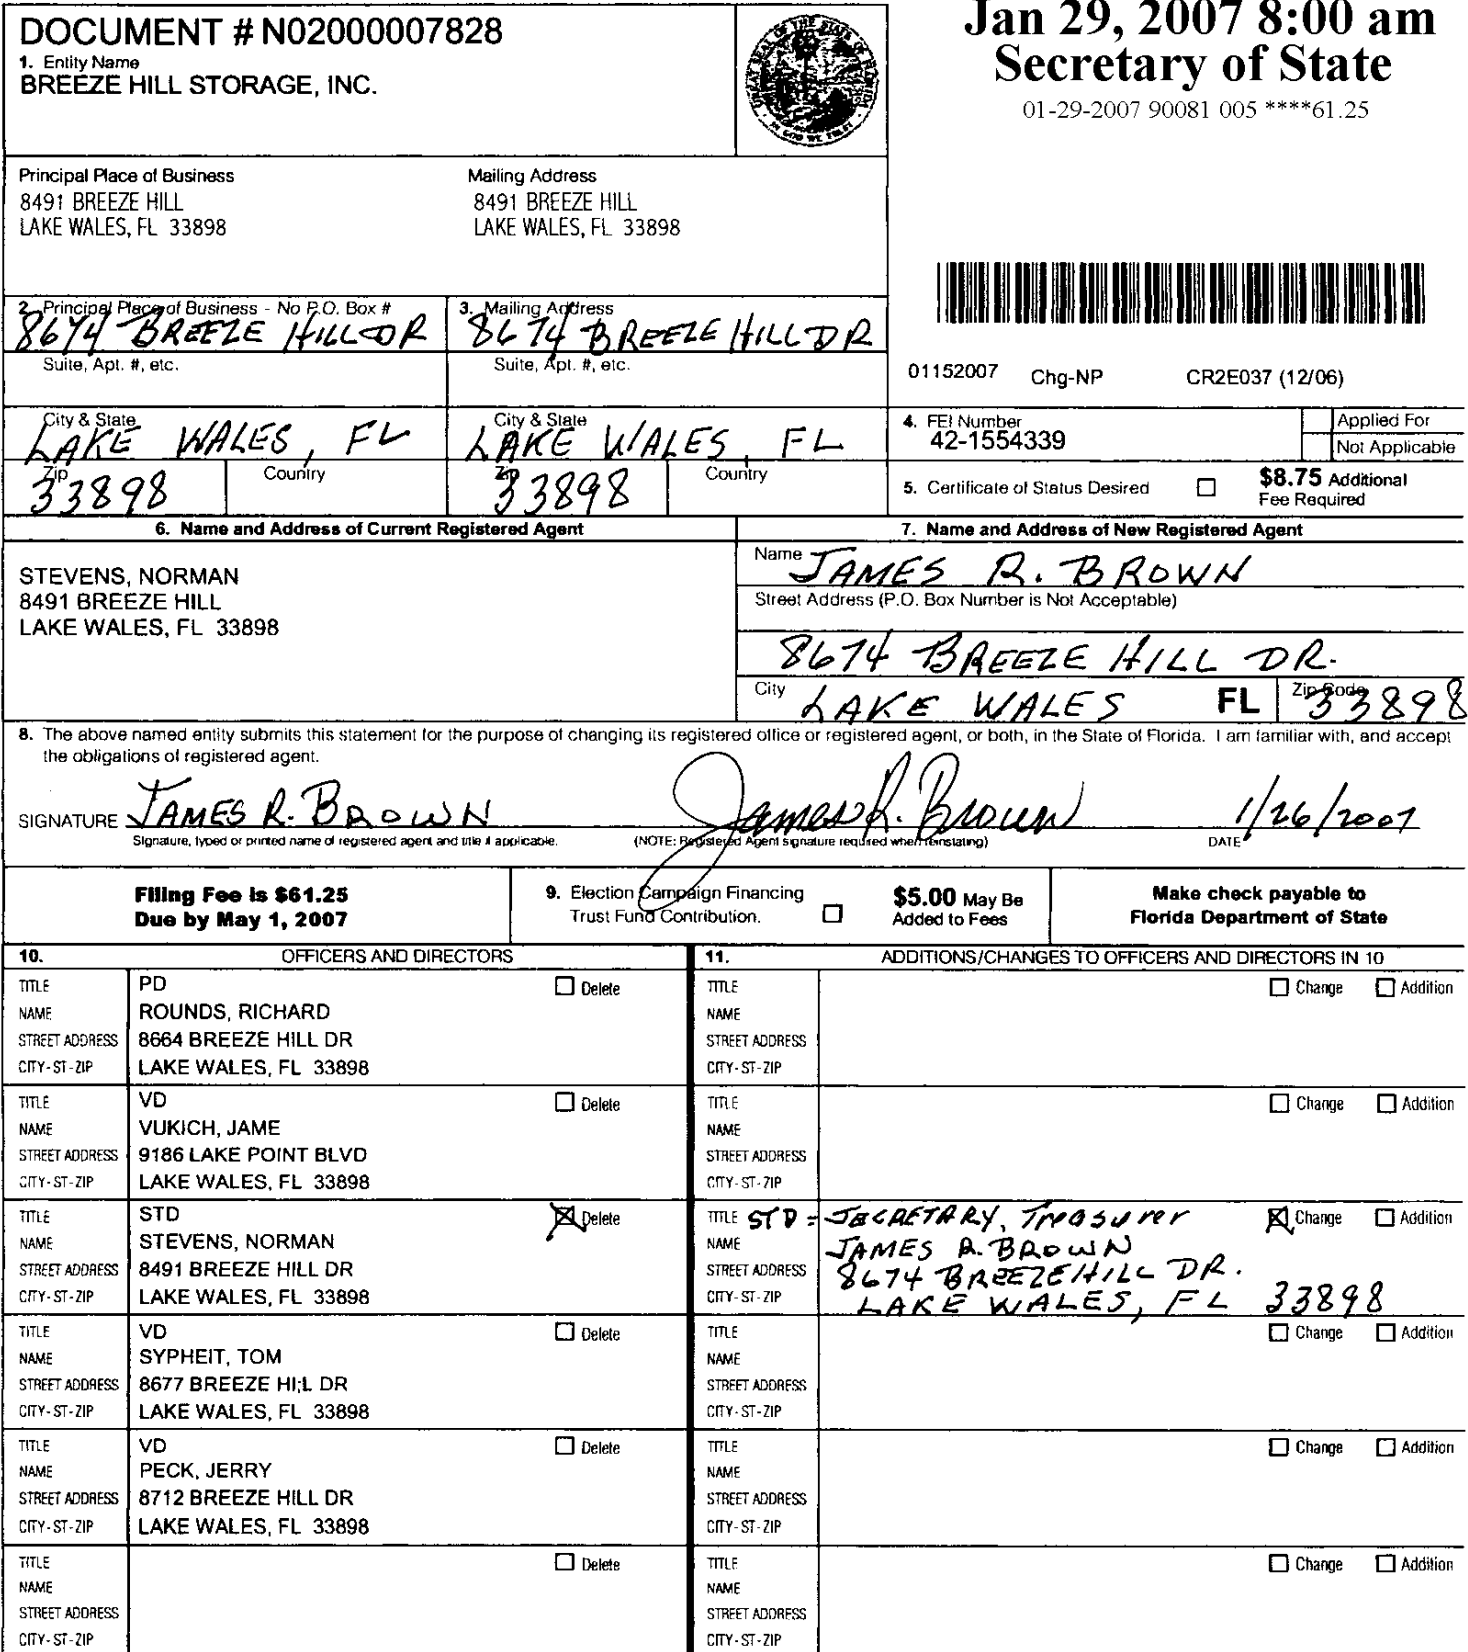 Jan 29, 2007 8:00 am
Secretary of State
01-29-2007 90081 005 ****61.25
DOCUMENT # N02000007828
1. Entity Name
BREEZE HILL STORAGE, INC.
Principal Place of Business
8491 BREEZE HILL
LAKE WALES, FL 33898
Mailing Address
8491 BREEZE HILL
LAKE WALES, FL 33898
2. Principal Place of Business - No P.O. Box #
8674 BREEZE HILL DR
Suite, Apt. #, etc.
City & State
LAKE WALES, FL
Zip
33898
Country
3. Mailing Address
8674 BREEZE HILL DR
Suite, Apt. #, etc.
City & State
LAKE WALES, FL
Zip
33898
Country
01152007 Chg-NP CR2E037 (12/06)
4. FEI Number
42-1554339
Applied For
Not Applicable
5. Certificate of Status Desired
$8.75 Additional
Fee Required
6. Name and Address of Current Registered Agent
STEVENS, NORMAN
8491 BREEZE HILL
LAKE WALES, FL 33898
7. Name and Address of New Registered Agent
Name JAMES R. BROWN
Street Address (P.O. Box Number is Not Acceptable)
8674 BREEZE HILL DR.
City LAKE WALES FL Zip Code 33898
8. The above named entity submits this statement for the purpose of changing its registered office or registered agent, or both, in the State of Florida. I am familiar with, and accept
the obligations of registered agent.
SIGNATURE JAMES R. BROWN James R. Brown 1/26/2007
Signature, typed or printed name of registered agent and title if applicable. (NOTE: Registered Agent signature required when reinstating) DATE
Filing Fee is $61.25
Due by May 1, 2007
9. Election Campaign Financing
Trust Fund Contribution.
$5.00 May Be
Added to Fees
Make check payable to
Florida Department of State
10. OFFICERS AND DIRECTORS
TITLE PD Delete
NAME ROUNDS, RICHARD
STREET ADDRESS 8664 BREEZE HILL DR
CITY-ST-ZIP LAKE WALES, FL 33898
TITLE VD Delete
NAME VUKICH, JAME
STREET ADDRESS 9186 LAKE POINT BLVD
CITY-ST-ZIP LAKE WALES, FL 33898
TITLE STD Delete
NAME STEVENS, NORMAN
STREET ADDRESS 8491 BREEZE HILL DR
CITY-ST-ZIP LAKE WALES, FL 33898
TITLE VD Delete
NAME SYPHEIT, TOM
STREET ADDRESS 8677 BREEZE HI;L DR
CITY-ST-ZIP LAKE WALES, FL 33898
TITLE VD Delete
NAME PECK, JERRY
STREET ADDRESS 8712 BREEZE HILL DR
CITY-ST-ZIP LAKE WALES, FL 33898
TITLE Delete
NAME
STREET ADDRESS
CITY-ST-ZIP
11. ADDITIONS/CHANGES TO OFFICERS AND DIRECTORS IN 10
TITLE Change Addition
NAME
STREET ADDRESS
CITY-ST-ZIP
TITLE Change Addition
NAME
STREET ADDRESS
CITY-ST-ZIP
TITLE STD = SECRETARY, Treasurer Change Addition
NAME JAMES R. BROWN
STREET ADDRESS 8674 BREEZE HILL DR.
CITY-ST-ZIP LAKE WALES, FL 33898
TITLE Change Addition
NAME
STREET ADDRESS
CITY-ST-ZIP
TITLE Change Addition
NAME
STREET ADDRESS
CITY-ST-ZIP
TITLE Change Addition
NAME
STREET ADDRESS
CITY-ST-ZIP